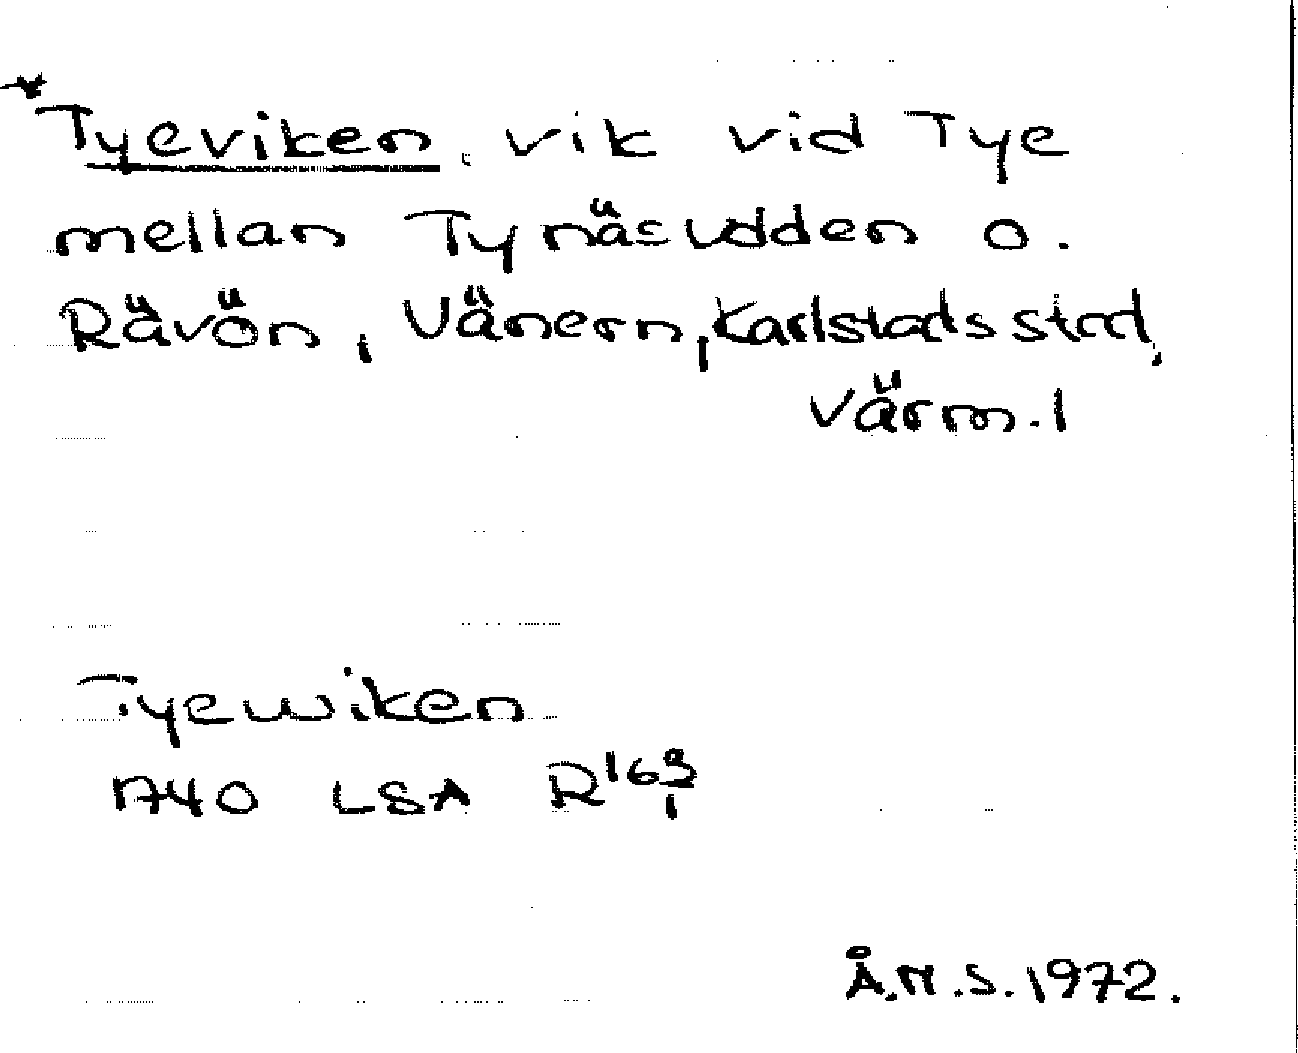 *Tyeviken, vik vid Tye
mellan Tynäsudden o.
Rävön, Vänern, Karlstads stad,
Värm.l
Tyewiken
1740 LSA R 163/1
Å.H.S. 1972.